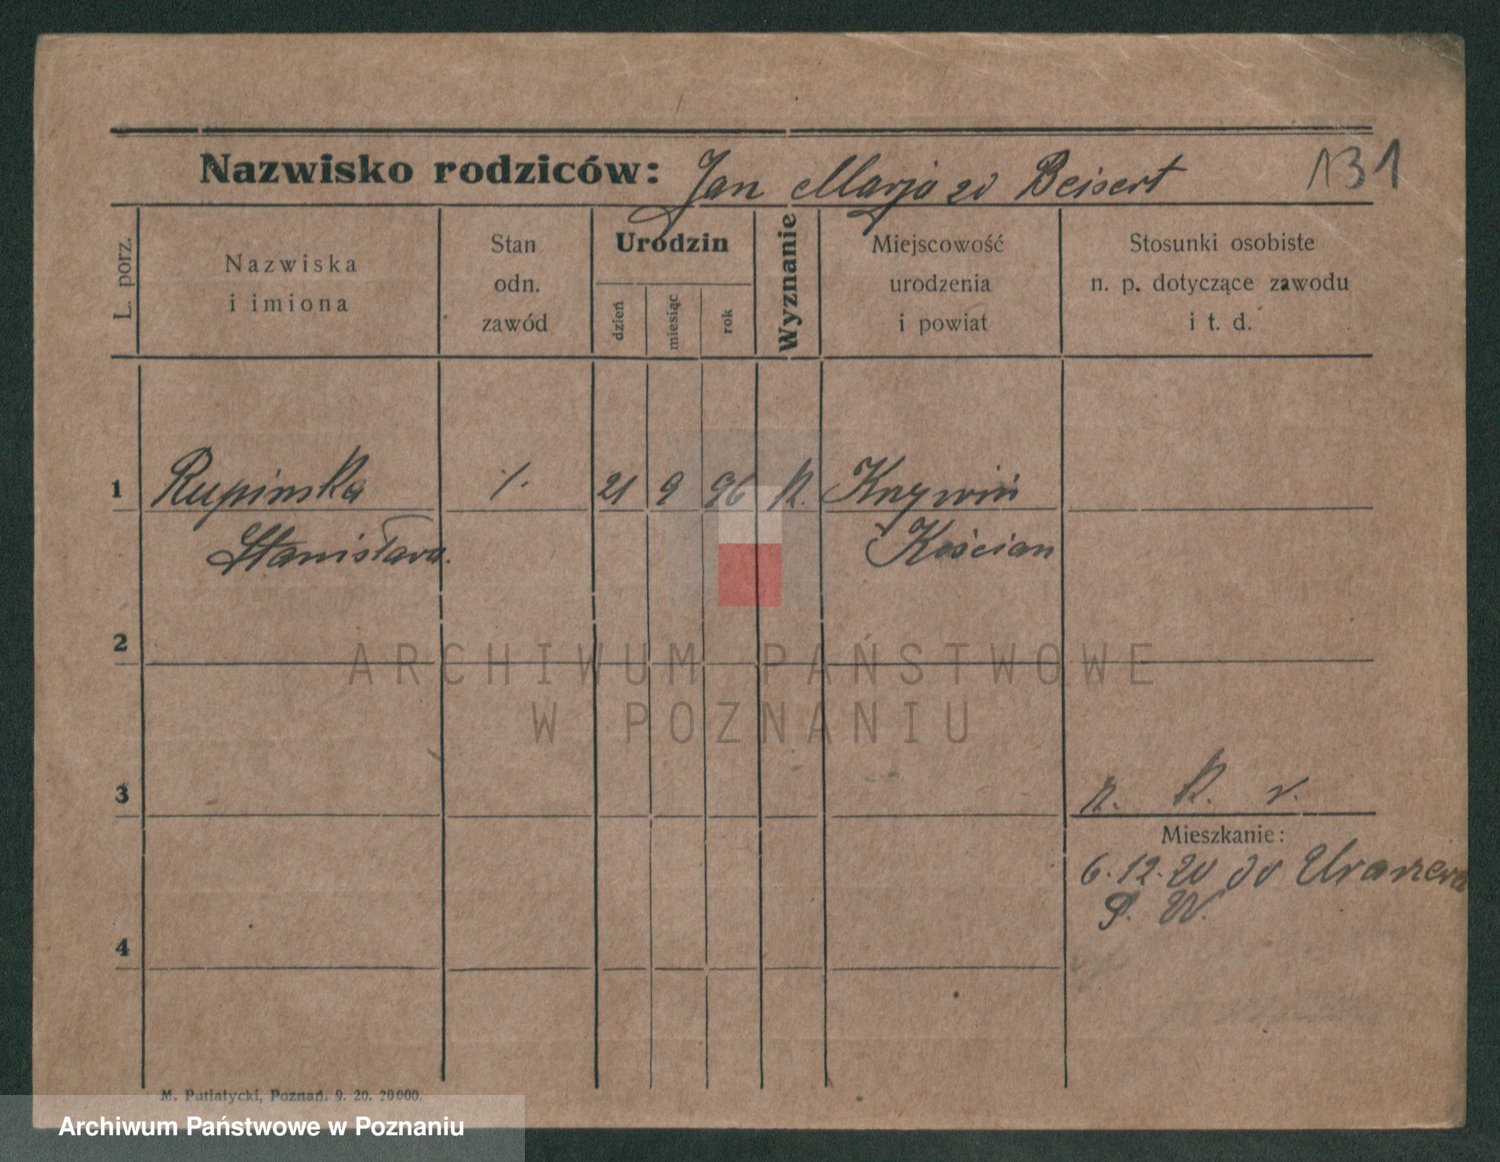 Nazwisko rodziców: Jan Marja zd Beisert 131
L. porz.
Nazwiska
i imiona
Stan
odn.
zawód
Urodzin
dzień
miesiąc
rok
Wyznanie
Miejscowość
urodzenia
i powiat
Stosunki osobiste
n. p. dotyczące zawodu
i t. d.
1 Rupinska ./. 21 9 96 k. Krzywiń
Stanisława. Kościan
2
3
r. k. v.
Mieszkanie:
6.12.20 do
P. W.
4
M. Putiatycki, Poznań. 9. 20. 20000.
ARCHIWUM PAŃSTWOWE
W POZNANIU
Archiwum Państwowe w Poznaniu